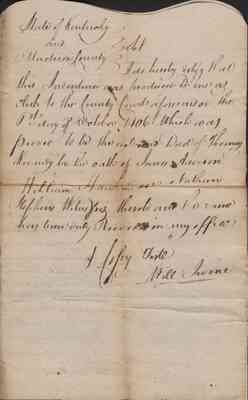 State of Kentucky
Madison County Sct
I do hereby certify that
this Indenture was produced to me as
Clerk to the County Court aforesaid on the
1st day of October 1806 Which was
proven to be the act and Deed of Thomas
by the oath of James
William
Stephens Witnesses thereto and the same
has been duly Recorded in my office
A Copy Teste
Will Irvine